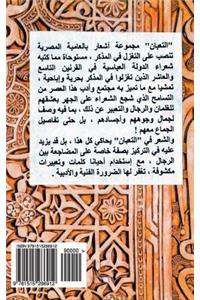 "التعبان" مجموعة أشعار بالعامية المصرية
تنصب على التغزل في المذكر ، مستوحاة مما كتبه
شعراء الدولة العباسية في القرنين التاسع
والعاشر الذين تغزلوا في المذكر بحرية وإباحية ،
تمشيا مع ما تميز به مجتمع وأدب هذا العصر من
التسامح الذي شجع الشعراء على الجهر بعشقهم
للغلمان والرجال والتعبير عن ذلك ، بما فيه وصف
لجمال وجوههم وأجسادهم ، بل حتى تفاصيل
الجماع معهم !
والشعر في "التعبان" يحاكي كل هذا ، بل قد يزيد
عليه في التركيز بصفة خاصة على المضاجعة بين
الرجال ، مع إستخدام أحيانا كلمات وتعبيرات
مكشوفة ، تغفر لها الضرورة الفنية والأدبية .
ISBN 9781515286912
90000
9 781515 286912